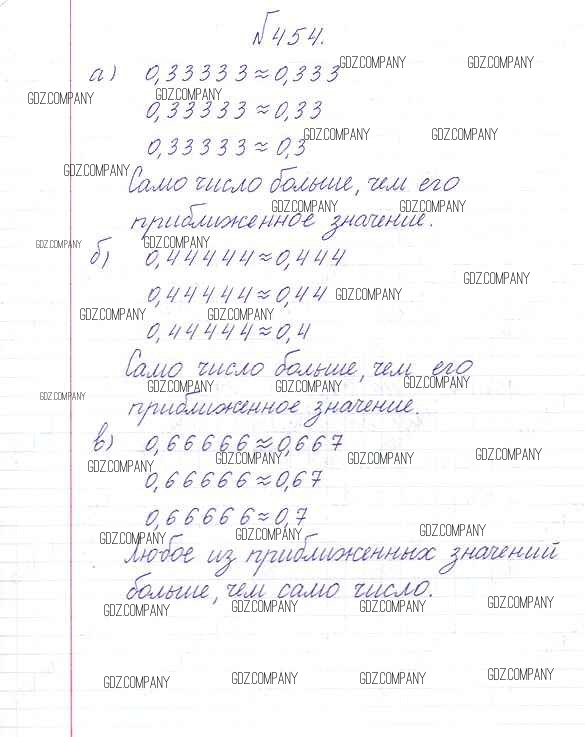 №454.
а) 0,33333≈0,333
0,33333≈0,33
0,33333≈0,3
Само число больше, чем его
приближенное значение.
б) 0,44444≈0,444
0,44444≈0,44
0,44444≈0,4
Само число больше, чем его
приближенное значение.
в) 0,66666≈0,667
0,66666≈0,67
0,66666≈0,7
Любое из приближенных значений
больше, чем само число.
GDZ.COMPANY GDZ.COMPANY
GDZ.COMPANY GDZ.COMPANY
GDZ.COMPANY GDZ.COMPANY
GDZ.COMPANY
GDZ.COMPANY GDZ.COMPANY
GDZ.COMPANY GDZ.COMPANY
GDZ.COMPANY
GDZ.COMPANY
GDZ.COMPANY GDZ.COMPANY
GDZ.COMPANY GDZ.COMPANY GDZ.COMPANY
GDZ.COMPANY
GDZ.COMPANY GDZ.COMPANY GDZ.COMPANY GDZ.COMPANY
GDZ.COMPANY GDZ.COMPANY GDZ.COMPANY
GDZ.COMPANY GDZ.COMPANY GDZ.COMPANY GDZ.COMPANY
GDZ.COMPANY GDZ.COMPANY GDZ.COMPANY GDZ.COMPANY